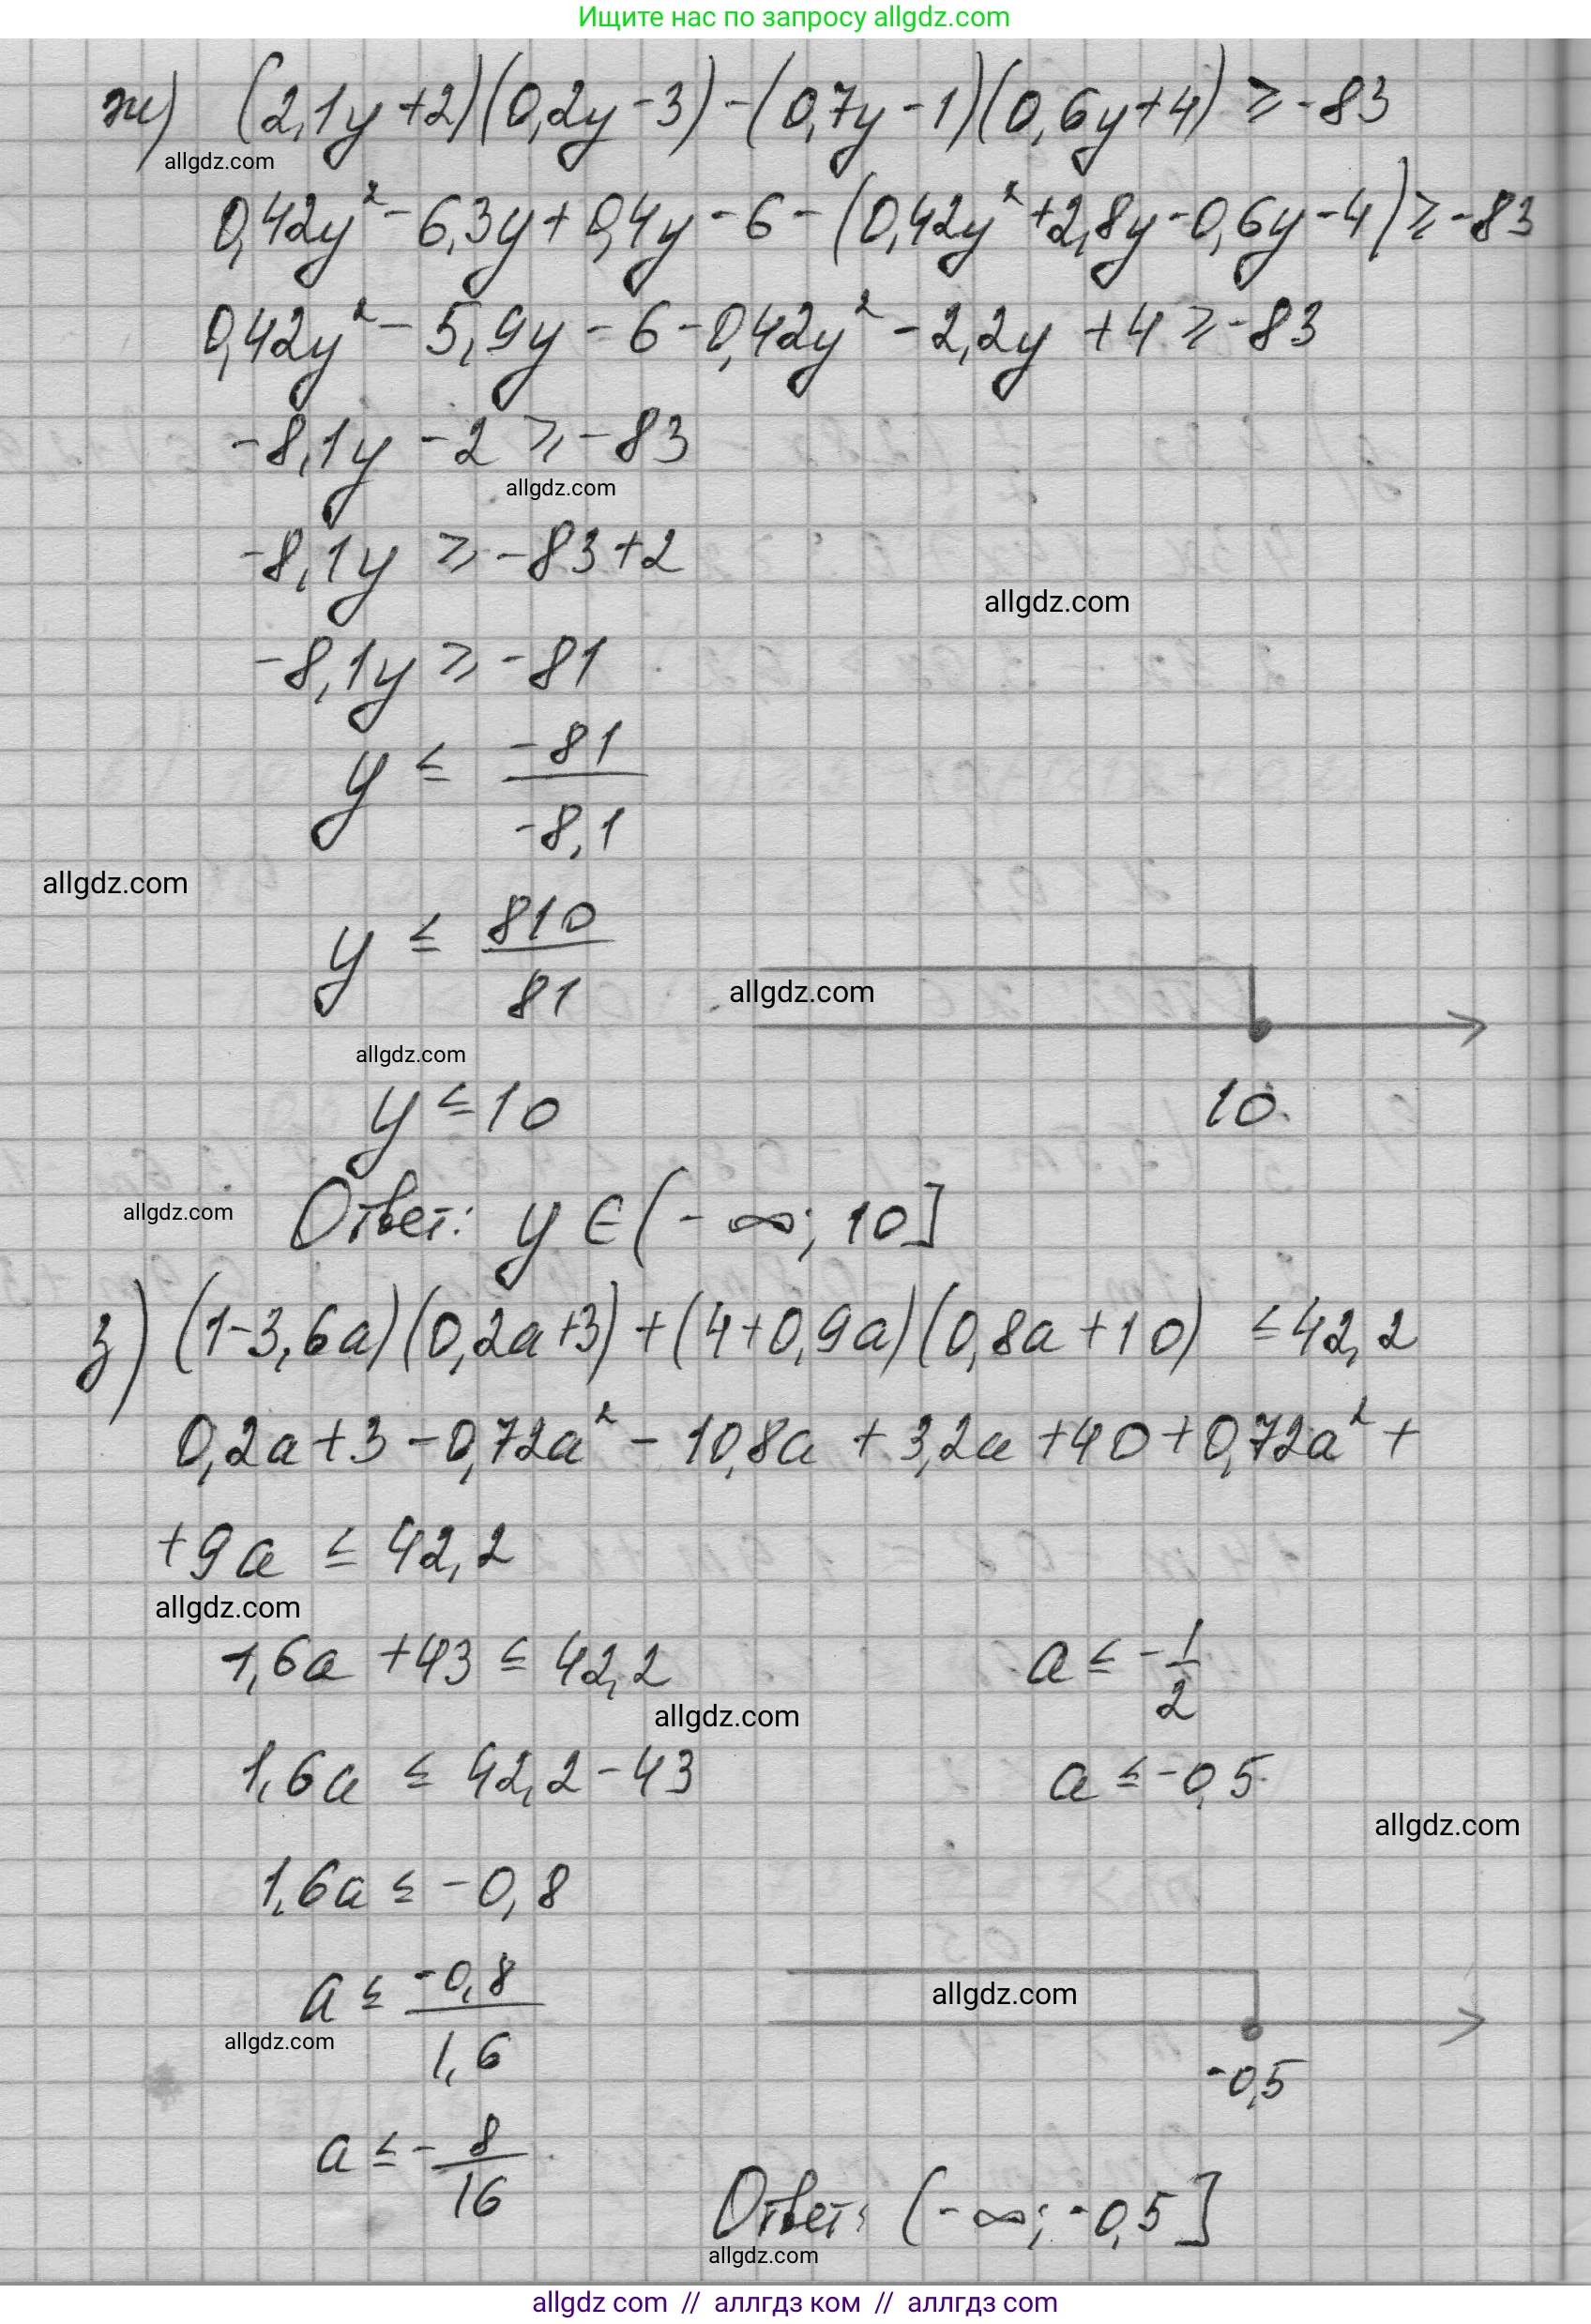 Ищите нас по запросу allgdz.com
ж) (2,1y+2)(0,2y-3)-(0,7y-1)(0,6y+4) ≥ -83
allgdz.com
0,42y² - 6,3y + 0,4y - 6 - (0,42y² + 2,8y - 0,6y - 4) ≥ -83
0,42y² - 5,9y - 6 - 0,42y² - 2,2y + 4 ≥ -83
-8,1y - 2 ≥ -83
allgdz.com
-8,1y ≥ -83+2
allgdz.com
-8,1y ≥ -81
y ≤ -81/-8,1
allgdz.com
y ≤ 810/81
allgdz.com
allgdz.com
y ≤ 10
10
allgdz.com
Ответ: y ∈ (-∞; 10]
з) (1-3,6a)(0,2a+3)+(4+0,9a)(0,8a+10) ≤ 42,2
0,2a+3-0,72a² - 10,8a + 3,2a +40+0,72a² +
+9a ≤ 42,2
allgdz.com
1,6a +43 ≤ 42,2
a ≤ -1/2
allgdz.com
1,6a ≤ 42,2-43
a ≤ -0,5
allgdz.com
1,6a ≤ -0,8
a ≤ -0,8/1,6
allgdz.com
allgdz.com
-0,5
a ≤ -8/16
Ответ: (-∞; -0,5]
allgdz.com
allgdz.com // аллгдз ком // аллгдз com